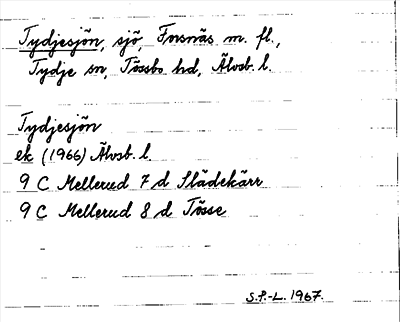 Tydjesjön, sjö, Forsnäs m. fl.,
Tydje sn, Tössbo hd, Älvsb. l.
Tydjesjön
ek (1966) Älvsb. l.
9 C Mellerud 7 d Slädekärr
9 C Mellerud 8 d Tösse
S.P.-L. 1967.